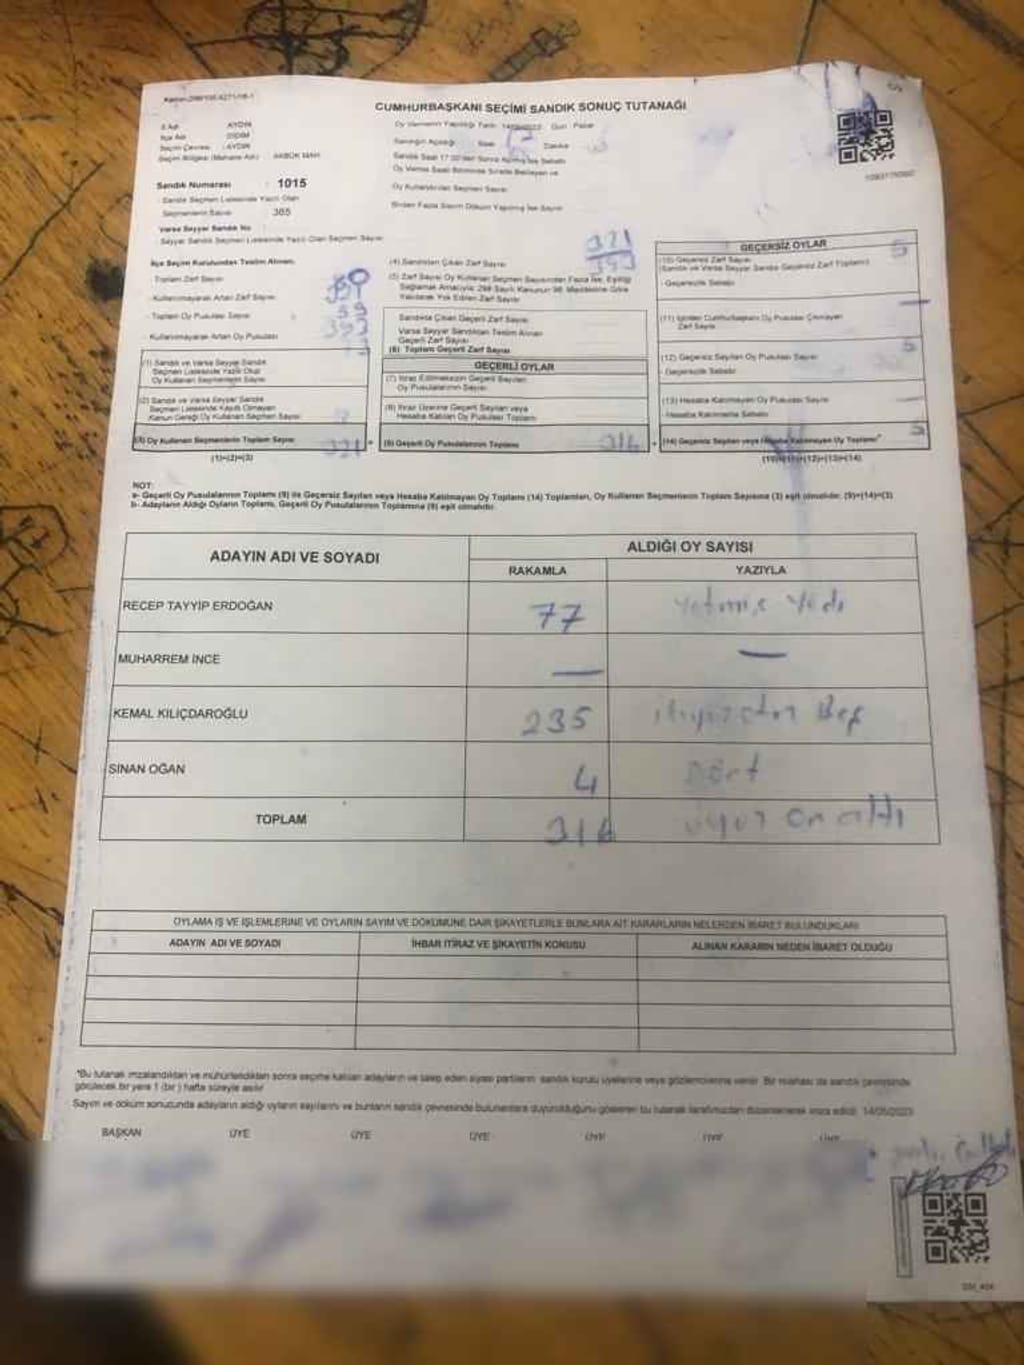 CUMHURBAŞKANI SEÇİMİ SANDIK SONUÇ TUTANAĞI
İl Adı AYDIN
İlçe Adı DİDİM
Seçim Çevresi : AYDIN
Seçim Bölgesi (Mahalle Adı) : AKBÜK MAH.
Sandık Numarası : 1015
Sandık Seçmen Listesinde Yazılı Olan
Seçmenlerin Sayısı 385
Varsa Seyyar Sandık No
Seyyar Sandık Seçmen Listesinde Yazılı Olan Seçmen Sayısı
Oy Vermenin Yapıldığı Tarih: 14/05/2023 Gün : Pazar
Sandığın Açıldığı Saat 17 Dakika
Oy Kullandırılan Seçmen Sayısı
Birden Fazla Sayım Döküm Yapılmış İse Sayısı
İlçe Seçim Kurulundan Teslim Alınan:
Toplam Zarf Sayısı
Kullanılmayarak Artan Zarf Sayısı
Toplam Oy Pusulası Sayısı
Kullanılmayarak Artan Oy Pusulası
(1) Sandık ve Varsa Seyyar Sandık
Seçmen Listesinde Yazılı Olup
Oy Kullanan Seçmenlerin Sayısı
(2) Sandık ve Varsa Seyyar Sandık
Seçmen Listesinde Kayıtlı Olmayan
Kanun Gereği Oy Kullanan Seçmen Sayısı
(3) Oy Kullanan Seçmenlerin Toplam Sayısı 321
(1)+(2)=(3)
(4) Sandıktan Çıkan Zarf Sayısı 321
(5) Zarf Sayısı Oy Kullanan Seçmen Sayısından Fazla İse, Eşitliği
Sağlamak Amacıyla; 298 Sayılı Kanunun 98. Maddesine Göre
Yakılarak Yok Edilen Zarf Sayısı
Sandıkta Çıkan Geçerli Zarf Sayısı
Varsa Seyyar Sandıktan Teslim Alınan
Geçerli Zarf Sayısı
(6) Toplam Geçerli Zarf Sayısı
GEÇERLİ OYLAR
(7) İtiraz Edilmeksizin Geçerli Sayılan
Oy Pusulalarının Sayısı
(8) İtiraz Üzerine Geçerli Sayılan veya
Hesaba Katılan Oy Pusulası Toplamı
(9) Geçerli Oy Pusulalarının Toplamı 316
GEÇERSİZ OYLAR
(10) Geçersiz Zarf Sayısı 5
(Sandık ve Varsa Seyyar Sandık Geçersiz Zarf Toplamı)
- Geçersizlik Sebebi
(11) İçinden Cumhurbaşkanı Oy Pusulası Çıkmayan
Zarf Sayısı
(12) Geçersiz Sayılan Oy Pusulası Sayısı 5
- Geçersizlik Sebebi
(13) Hesaba Katılmayan Oy Pusulası Sayısı
- Hesaba Katılmama Sebebi
(14) Geçersiz Sayılan veya Hesaba Katılmayan Oy Toplamı 5
(10)+(11)+(12)+(13)=(14)
NOT:
a- Geçerli Oy Pusulalarının Toplamı (9) ile Geçersiz Sayılan veya Hesaba Katılmayan Oy Toplamı (14) Toplamları, Oy Kullanan Seçmenlerin Toplam Sayısına (3) eşit olmalıdır. (9)+(14)=(3)
b- Adayların Aldığı Oyların Toplamı, Geçerli Oy Pusulalarının Toplamına (9) eşit olmalıdır.
ADAYIN ADI VE SOYADI ALDIĞI OY SAYISI
RAKAMLA YAZIYLA
RECEP TAYYİP ERDOĞAN 77 Yetmiş Yedi
MUHARREM İNCE — —
KEMAL KILIÇDAROĞLU 235
SİNAN OĞAN 4 Dört
TOPLAM 316 üçyüz on altı
OYLAMA İŞ VE İŞLEMLERİNE VE OYLARIN SAYIM VE DÖKÜMÜNE DAİR ŞİKAYETLERLE BUNLARA AİT KARARLARIN NELERDEN İBARET BULUNDUKLARI
ADAYIN ADI VE SOYADI İHBAR İTİRAZ VE ŞİKAYETİN KONUSU ALINAN KARARIN NEDEN İBARET OLDUĞU
*Bu tutanak imzalandıktan ve mühürlendikten sonra seçime katılan adayların ve talep eden siyasi partilerin sandık kurulu üyelerine veya gözlemcilerine verilir. Bir nüshası da sandık çevresinde
görülecek bir yere 1 (bir) hafta süreyle asılır.
Sayım ve döküm sonucunda adayların aldığı oyların sayılarını ve bunların sandık çevresinde bulunanlara duyurulduğunu gösteren bu tutanak tarafımızdan düzenlenerek imza edildi. 14/05/2023
BAŞKAN ÜYE ÜYE ÜYE ÜYE ÜYE ÜYE